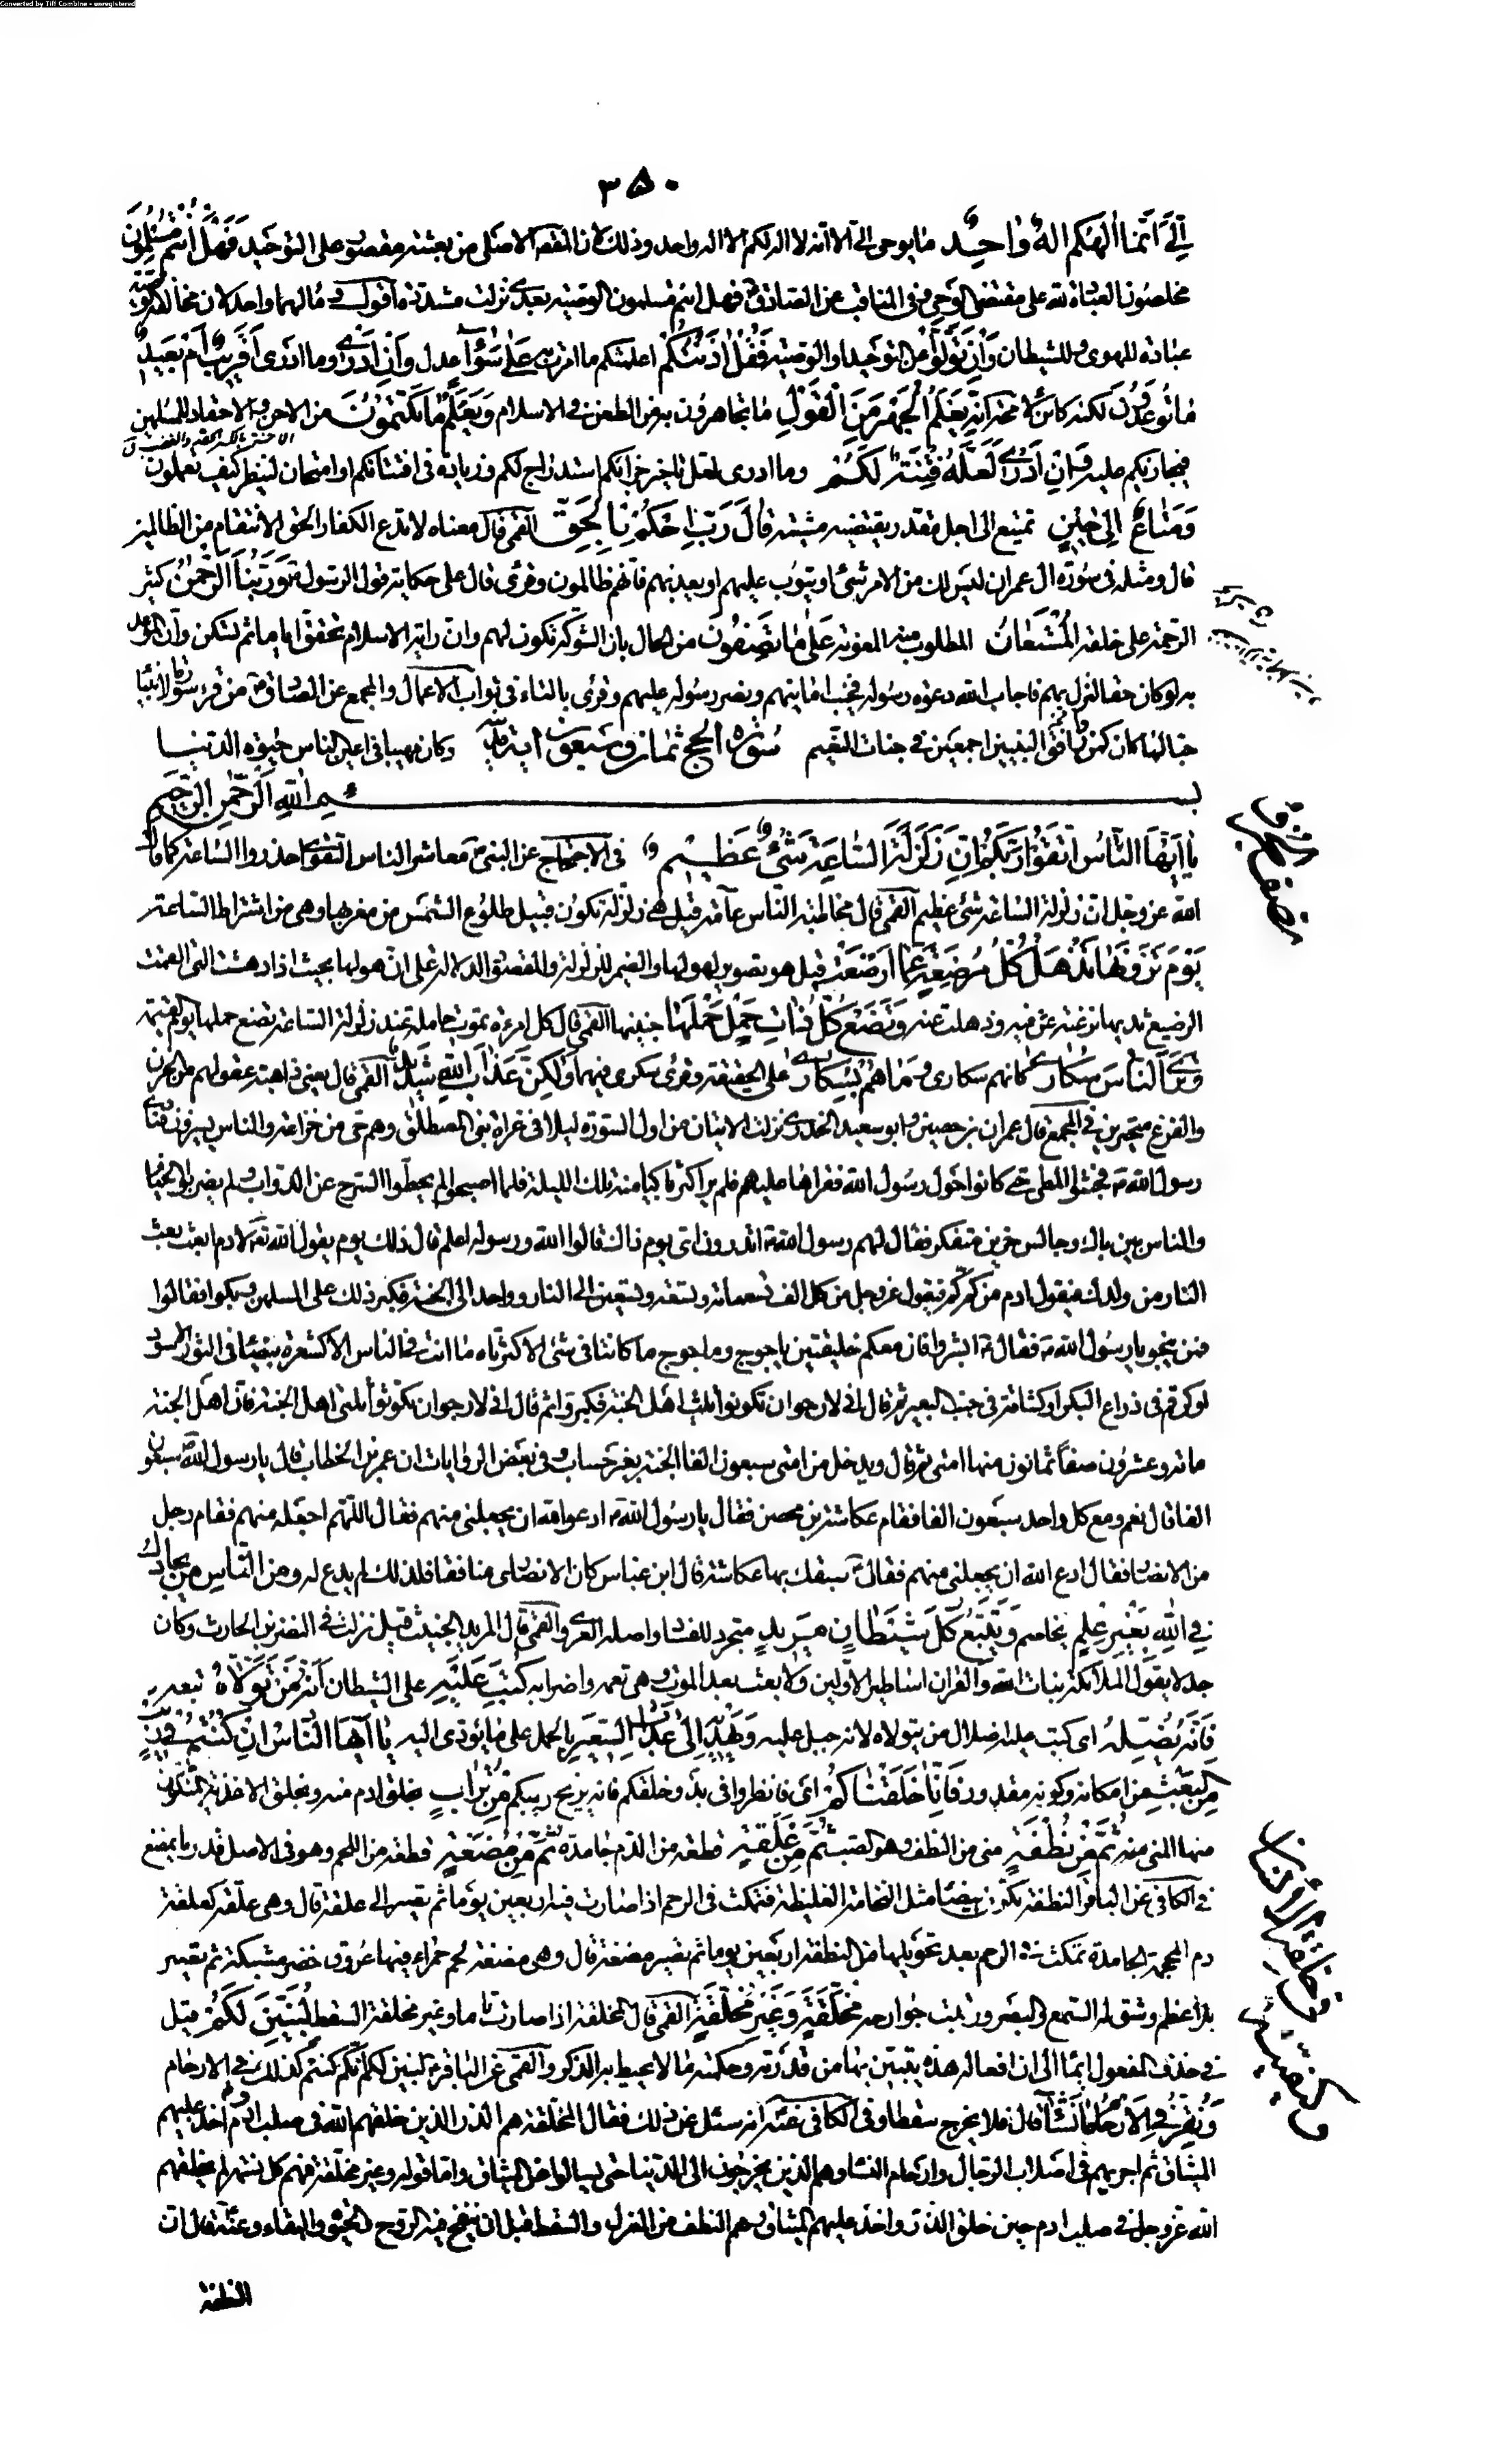 Converted by Tiff Combine - unregistered
۳۵۰
اِلَیَّ اَنَّمَا اِلٰهُكُمْ اِلٰهٌ وٰاحِدٌ ما یوحی الی الا انه لا اله لكم الا اله واحد وذلك لان المقصد الاصلی من بعثته مقصور علی التوحید فَهَلْ اَنْتُمْ مُسْلِمُونَ
مخلصون العبادة لله علی مقتضی الوحی وفی المناقب عن الصادق فهل انتم مسلمون الوصیة بعدی نزلت مشددة اقول مالهما واحد لان مخالفة
عبادة للهوی والشیطان وَاِنْ تَوَلَّوْا عن التوحید او الوصیة فَقُلْ اٰذَنْتُكُمْ اعلمتكم ما امرت به عَلیٰ سَوٰآءٍ عدل وَاِنْ اَدْرِی وما ادری اَقَرِیبٌ اَمْ بَعِیدٌ
مٰا تُوعَدُونَ لكنه كائن لا محة اِنَّهُ یَعْلَمُ الْجَهْرَ مِنَ الْقَوْلِ ما تجاهرون به من الطعن فی الاسلام وَیَعْلَمُ مٰا تَكْتُمُونَ من الاحن والاحقاد للمسلمین
فیجازیكم علیه وَاِنْ اَدْرِی لَعَلَّهُ فِتْنَةٌ لَكُمْ وما ادری لعل تاخیر جزائكم استدراج لكم وزیادة فی افتتانكم او امتحان لینظر كیف تعملون
وَمَتٰاعٌ اِلیٰ حِینٍ تمتیع الی اجل مقدر یقتضیه مشیته قٰالَ رَبِّ احْكُمْ بِالْحَقِّ القمی قال معناه لا تدع الكفار الحق الانتقام من الظالمین
قال ومثله فی سورة ال عمران لیس لك من الامر شیء او یتوب علیهم او یعذبهم فانهم ظالمون وقریء قال علی حكایة قول الرسول وَرَبُّنَا الرَّحْمٰنُ كثیر
الرحمة علی خلقه الْمُسْتَعٰانُ المطلوب منه المعونة عَلیٰ مٰا تَصِفُونَ من الحال بان الشوكة تكون لهم وان رایة الاسلام تخفق ایاما ثم تسكن وان الموعد
به لو كان حقا لنزل بهم فاجاب الله دعوة رسوله فخیب امانیهم ونصر رسوله علیهم وقریء بالتاء فی ثواب الاعمال والمجمع عن الصادق من قرء سورة الانبیاء
حبا لها كان كمن رافق النبیین اجمعین فی جنات النعیم وكان مهیبا فی اعین الناس حیوة الدنیا سورة الحج ثمان وسبعون ایة
بسم الله الرحمن الرحیم
یٰا اَیُّهَا النّٰاسُ اتَّقُوا رَبَّكُمْ اِنَّ زَلْزَلَةَ السّٰاعَةِ شَیْءٌ عَظِیمٌ فی الاحتجاج عن النبی معاشر الناس التقوی احذروا الساعة كما قال
الله عز وجل ان زلزلة الساعة شیء عظیم القمی قال مخاطبة الناس عامة قیل هی زلزلة تكون قبیل طلوع الشمس من مغربها وهی من اشراط الساعة
یَوْمَ تَرَوْنَهٰا تَذْهَلُ كُلُّ مُرْضِعَةٍ عَمّٰا اَرْضَعَتْ قیل هو تصویر لهولها والضمیر للزلزلة والمقصود الدلالة علی ان هولها بحیث اذا دهشت التی القمت
الرضیع ثدیها نزعته عن فیه وذهلت عنه وَتَضَعُ كُلُّ ذٰاتِ حَمْلٍ حَمْلَهٰا جنینها القمی قال كل امرءة تموت حاملة عند زلزلة الساعة تضع حملها یوم القیمة
وَتَرَی النّٰاسَ سُكٰاریٰ كانهم سكاری وَمٰا هُمْ بِسُكٰاریٰ علی الحقیقة وقریء سكری فیهما وَلٰكِنَّ عَذٰابَ اللهِ شَدِیدٌ القمی قال یعنی ذاهبة عقولهم من الحزن
والفزع متحیرین فی المجمع قال عمران بن حصین وابو سعید الخدری نزلت الایتان من اول السورة لیلا فی غزاة بنی المصطلق وهم حی من خزاعة والناس یسیرون فنادی
رسول الله فحثوا المطی حتی كانوا حول رسول الله فقراها علیهم فلم یر اكثر باكیا من تلك اللیلة فلما اصبحوا لم یحطوا السرج عن الدواب ولم یضربوا الخیام
والناس بین باك وجالس حزین متفكر فقال لهم رسول الله اتدرون ای یوم ذاك قالوا الله ورسوله اعلم قال ذلك یوم یقول الله لادم ابعث بعث
النار من ولدك فیقول ادم من كم كم فیقول عز وجل من كل الف تسعمائة وتسعة وتسعین الی النار وواحد الی الجنة فكبر ذلك علی المسلمین وبكوا فقالوا
فمن ینجو یا رسول الله فقال ابشروا فان معكم خلیقتین یاجوج وماجوج ما كانتا فی شیء الا كثرتاه ما انتم فی الناس الا كشعرة بیضاء فی الثور الاسود
او كرقم فی ذراع البكر او كشامة فی جنب البعیر ثم قال انی لارجو ان تكونوا ثلث اهل الجنة فكبروا ثم قال انی لارجو ان تكونوا ثلثی اهل الجنة فان اهل الجنة
مائة وعشرون صفا ثمانون منها امتی ثم قال ویدخل من امتی سبعون الفا الجنة بغیر حساب وفی بعض الروایات ان عمر بن الخطاب قال یا رسول الله سبعون
الفا قال نعم ومع كل واحد سبعون الفا فقام عكاشة بن محصن فقال یا رسول الله ادعوا الله ان یجعلنی منهم فقال اللهم اجعله منهم فقام رجل
من الانصار فقال ادع الله ان یجعلنی منهم فقال سبقك بها عكاشة قال ابن عباس كان الانصاری منافقا فلذلك لم یدع له وَمِنَ النّٰاسِ مَنْ یُجٰادِلُ
فِی اللهِ بِغَیْرِ عِلْمٍ یخاصم وَیَتَّبِعُ كُلَّ شَیْطٰانٍ مَرِیدٍ متجرد للفساد واصله العری والقمی قال المرید الخبیث قیل نزلت فی النضر بن الحارث وكان
جدلا یقول الملائكة بنات الله والقران اساطیر الاولین ولا بعث بعد الموت وهی تعمه واضرابه كُتِبَ عَلَیْهِ علی الشیطان اَنَّهُ مَنْ تَوَلّٰاهُ تبعه
فَاَنَّهُ یُضِلُّهُ ای كتب علیه اضلال من یتولاه لانه جبل علیه وَیَهْدِیهِ اِلیٰ عَذٰابِ السَّعِیرِ بالحمل علی ما یؤدی الیه یٰا اَیُّهَا النّٰاسُ اِنْ كُنْتُمْ فِی رَیْبٍ
مِنَ الْبَعْثِ من امكانه وكونه مقدورا فَاِنّٰا خَلَقْنٰاكُمْ ای فانظروا فی بدو خلقكم فانه یزیح ریبكم مِنْ تُرٰابٍ بخلق ادم منه وبخلق الاغذیة المتكون
منها المنی منه ثُمَّ مِنْ نُطْفَةٍ منی من النطف وهو الصب ثُمَّ مِنْ عَلَقَةٍ قطعة من الدم جامدة ثُمَّ مِنْ مُضْغَةٍ قطعة من اللحم وهو فی الاصل قدر ما یمضغ
فی الكافی عن الباقر النطفة تكون بیضاء مثل النخامة الغلیظة فتمكث فی الرحم اذا صارت فیه اربعین یوما ثم تصیر الی علقة قال وهی علقة كعلقة
دم المحجمة الجامدة تمكث فی الرحم بعد تحویلها من النطفة اربعین یوما ثم تصیر مضغة قال وهی مضغة لحم حمراء فیها عروق خضر مشبكة ثم تصیر
الی عظم وشق له السمع والبصر ورتبت جوارحه مُخَلَّقَةٍ وَغَیْرِ مُخَلَّقَةٍ القمی قال المخلقة اذا صارت تاما وغیر مخلقة السقط لِنُبَیِّنَ لَكُمْ قیل
فی حذف المفعول ایماء الی ان افعاله هذه یتبین بها من قدرته وحكمته ما لا یحیط به الذكر والقمی عن الباقر لنبین لكم انكم كنتم كذلك فی الارحام
وَنُقِرُّ فِی الْاَرْحٰامِ مٰا نَشٰآءُ قال فلا یخرج سقطا وفی الكافی عنه انه سئل عن ذلك فقال المخلقة هم الذر الذین خلقهم الله فی صلب ادم اخذ علیهم
المیثاق ثم اجریهم فی اصلاب الرجال وارحام النساء وهم الذین یخرجون الی الدنیا حتی یسالوا عن المیثاق واما قوله وغیر مخلقة فهم كل نسمة لم یخلقهم
الله عز وجل فی صلب ادم حین خلق الذر واخذ علیهم المیثاق وهم النطف من العزل والسقط قبل ان ینفخ فیه الروح والحیوة والبقاء وعنه قال ان
النطفة